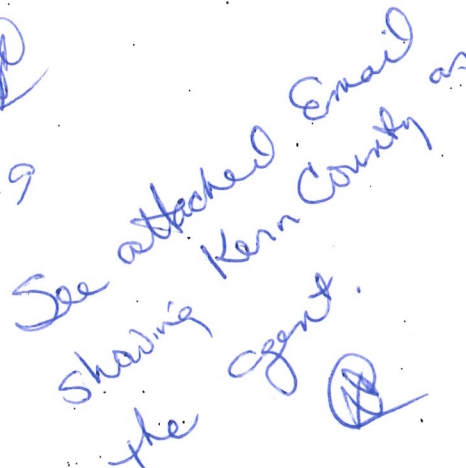 9
See attached Email
showing Kern County as
the agent.